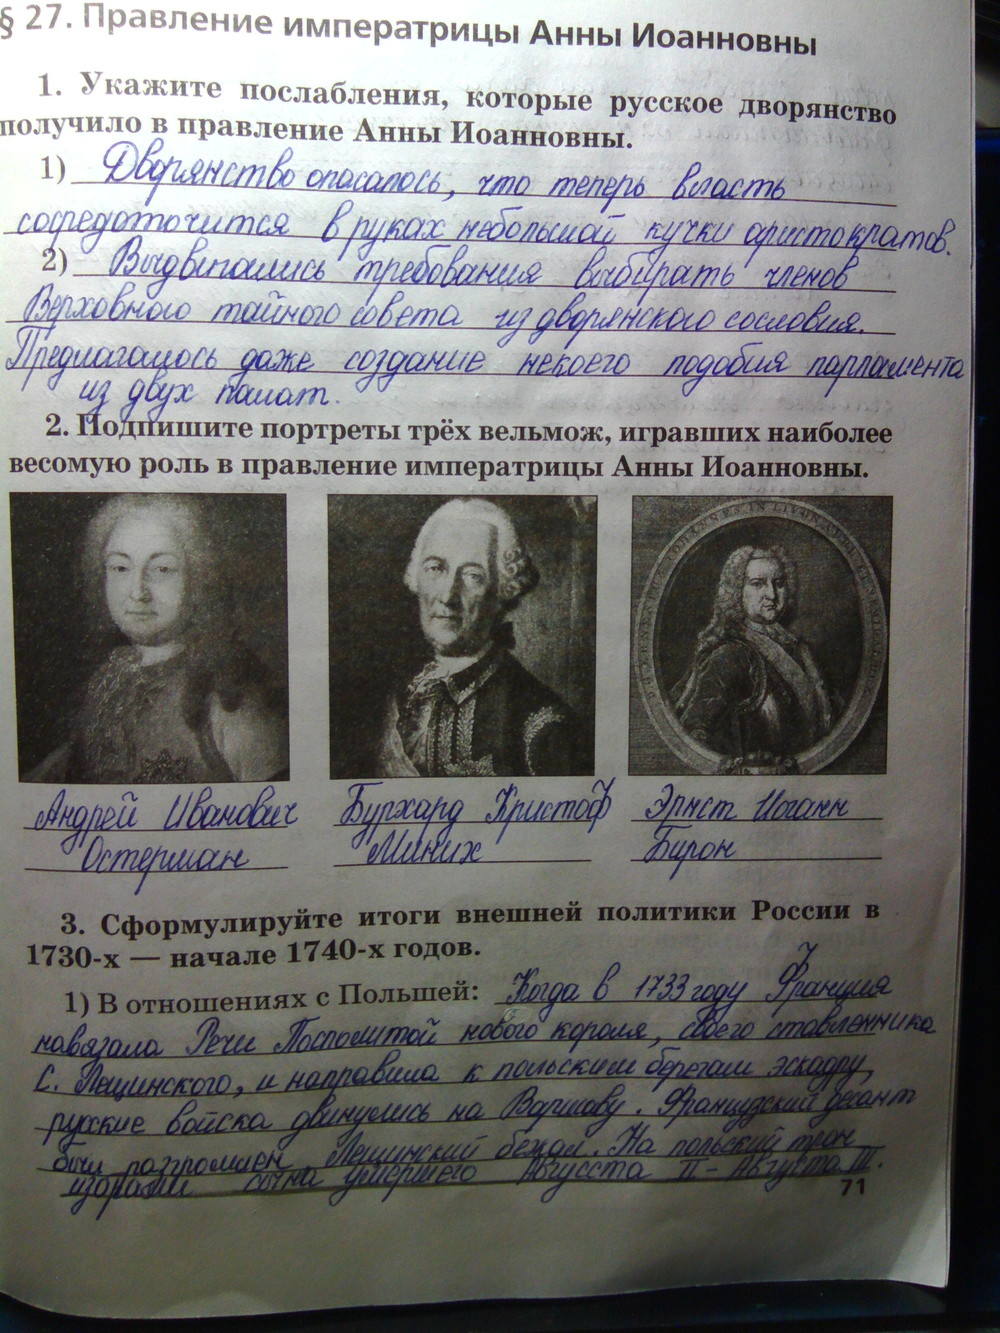 § 27. Правление императрицы Анны Иоанновны
1. Укажите послабления, которые русское дворянство
получило в правление Анны Иоанновны.
1) Дворянство опасалось, что теперь власть
сосредоточится в руках небольшой кучки аристократов.
2) Выдвигались требования выбирать членов
Верховного тайного совета из дворянского сословия.
Предлагалось даже создание некоего подобия парламента
из двух палат.
2. Подпишите портреты трёх вельмож, игравших наиболее
весомую роль в правление императрицы Анны Иоанновны.
Андрей Иванович
Остерман
Бурхард Кристоф
Миних
Эрнст Иоганн
Бирон
3. Сформулируйте итоги внешней политики России в
1730-х — начале 1740-х годов.
1) В отношениях с Польшей: Когда в 1733 году Франция
навязала Речи Посполитой нового короля, своего ставленника
С. Лещинского, и направила к польским берегам эскадру,
русские войска двинулись на Варшаву. Французский десант
был разгромлен, Лещинский бежал. На польский трон
избрали сына умершего Августа II - Августа III.
71